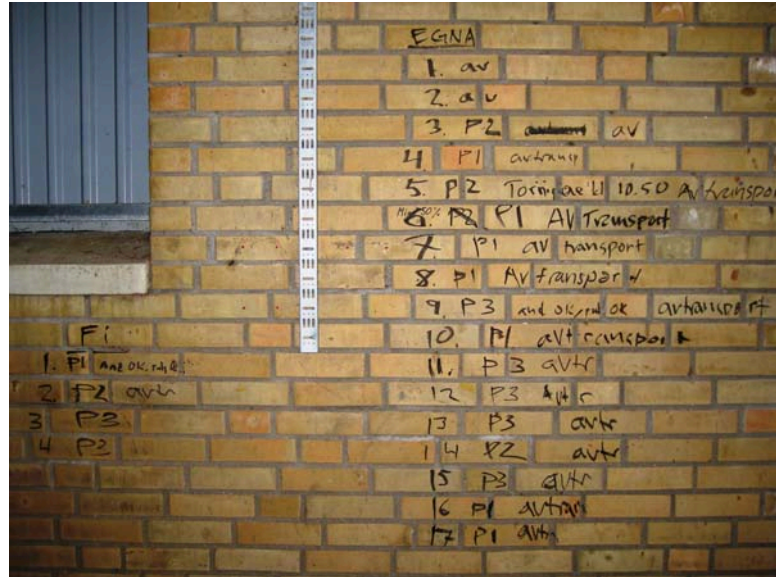 EGNA
1. av
2. av
3. P2 av
4 P1 avtransp
5. P2 10.50 Av transport
6. P1 AV Transport
7. P1 av transport
8. P1 Av transport
9. P3 and ok, avtransport
10. P1 avtransport
11. P3 avtr
12 P3 Avtr
13 P3 avtr
14 P2 avtr
15 P3 avtr
16 P1 avtran
17 P1 avtr
Fi
1. P1 And OK.
2 P2 avtr
3 P3
4 P2